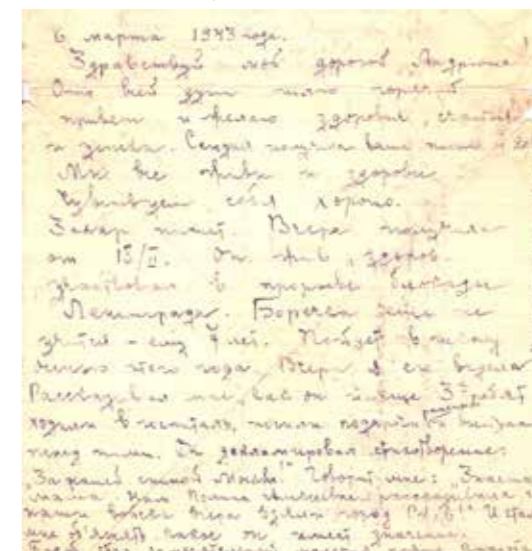 6 марта 1943 года.
Здравствуй мой дорогой Андрюша
От всей души шлю горячий
привет и желаю здоровья, счастья
и успеха. Сегодня получила ваше письмо
Мы все живы и здоровы
Чувствуем себя хорошо.
Захар пишет. Вчера получила
от 15/II. Он жив, здоров.
участвовал в прорыве блокады
Ленинграда. Боречка еще не
учится - ему 7 лет. Пойдет в школу
этого года. Вчера я его видела
Рассказывал мне, как он и еще 3 ребят
ходили в госпиталь, носили подарки
перед ними. Он декламировал стихотворение:
"За нашей спиной Москва!" Говорит мне: "Знаешь
мама, нам рассказывала,
наши войска вчера взяли город Ржев!" И стал
мне объяснять какое он имеет значение.